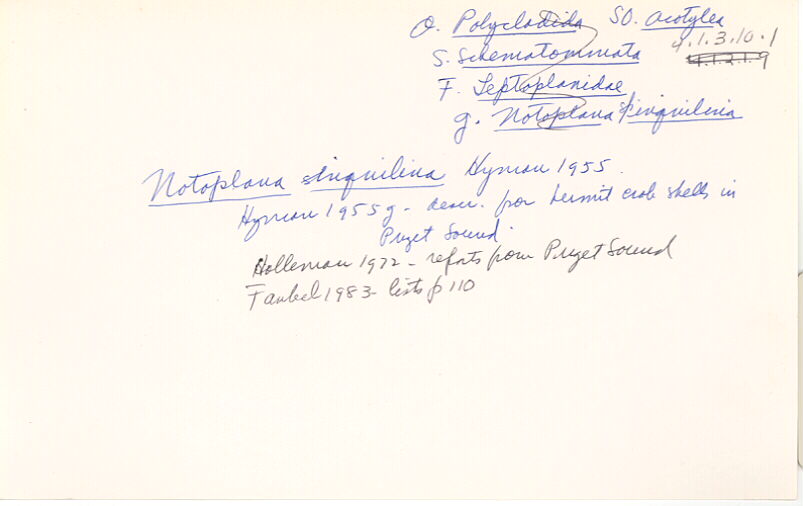 O. Polycladida SO. Acotylea
4.1.3.10.1
S. Schematommata 4.1.2.1.9
F. Leptoplanidae
g. Notoplana inquilina
Notoplana inquilina Hyman 1955.
Hyman 1955g - descr. from hermit crab shells in
Puget Sound.
Holleman 1972 - reports from Puget Sound
Faubel 1983 - lists p 110